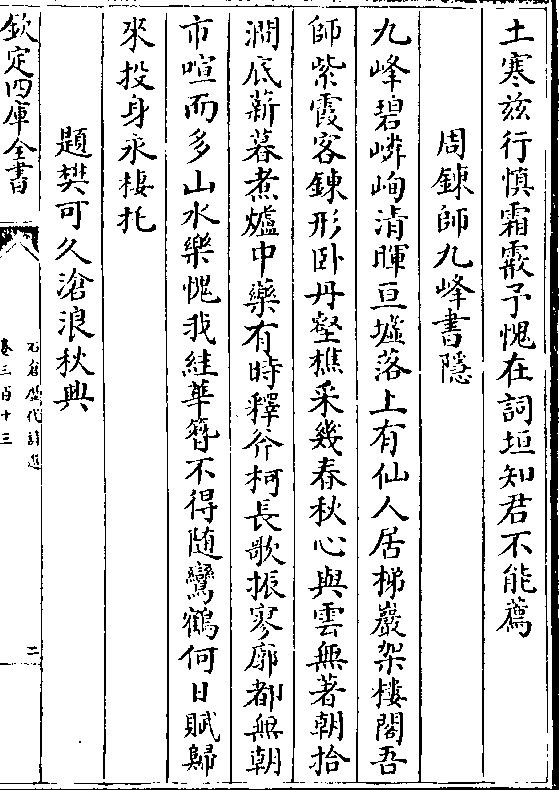 土寒兹行慎霜霰予愧在詞垣知君不能薦
周鍊師九峰書隱
九峰碧嶙峋清暉亘墟落上有仙人居梯巖架棲閣吾
師紫霞客鍊形卧丹壑樵采幾春秋心與雲無著朝拾
澗底薪暮煮爐中藥有時釋斧柯長歌振寥廓都無朝
市喧而多山水樂愧我絓華簪不得随鸞鶴何日賦歸
來投身永棲托
題樊可久滄浪秋興
欽定四庫全書
石倉歴代詩選
卷三百十三
二